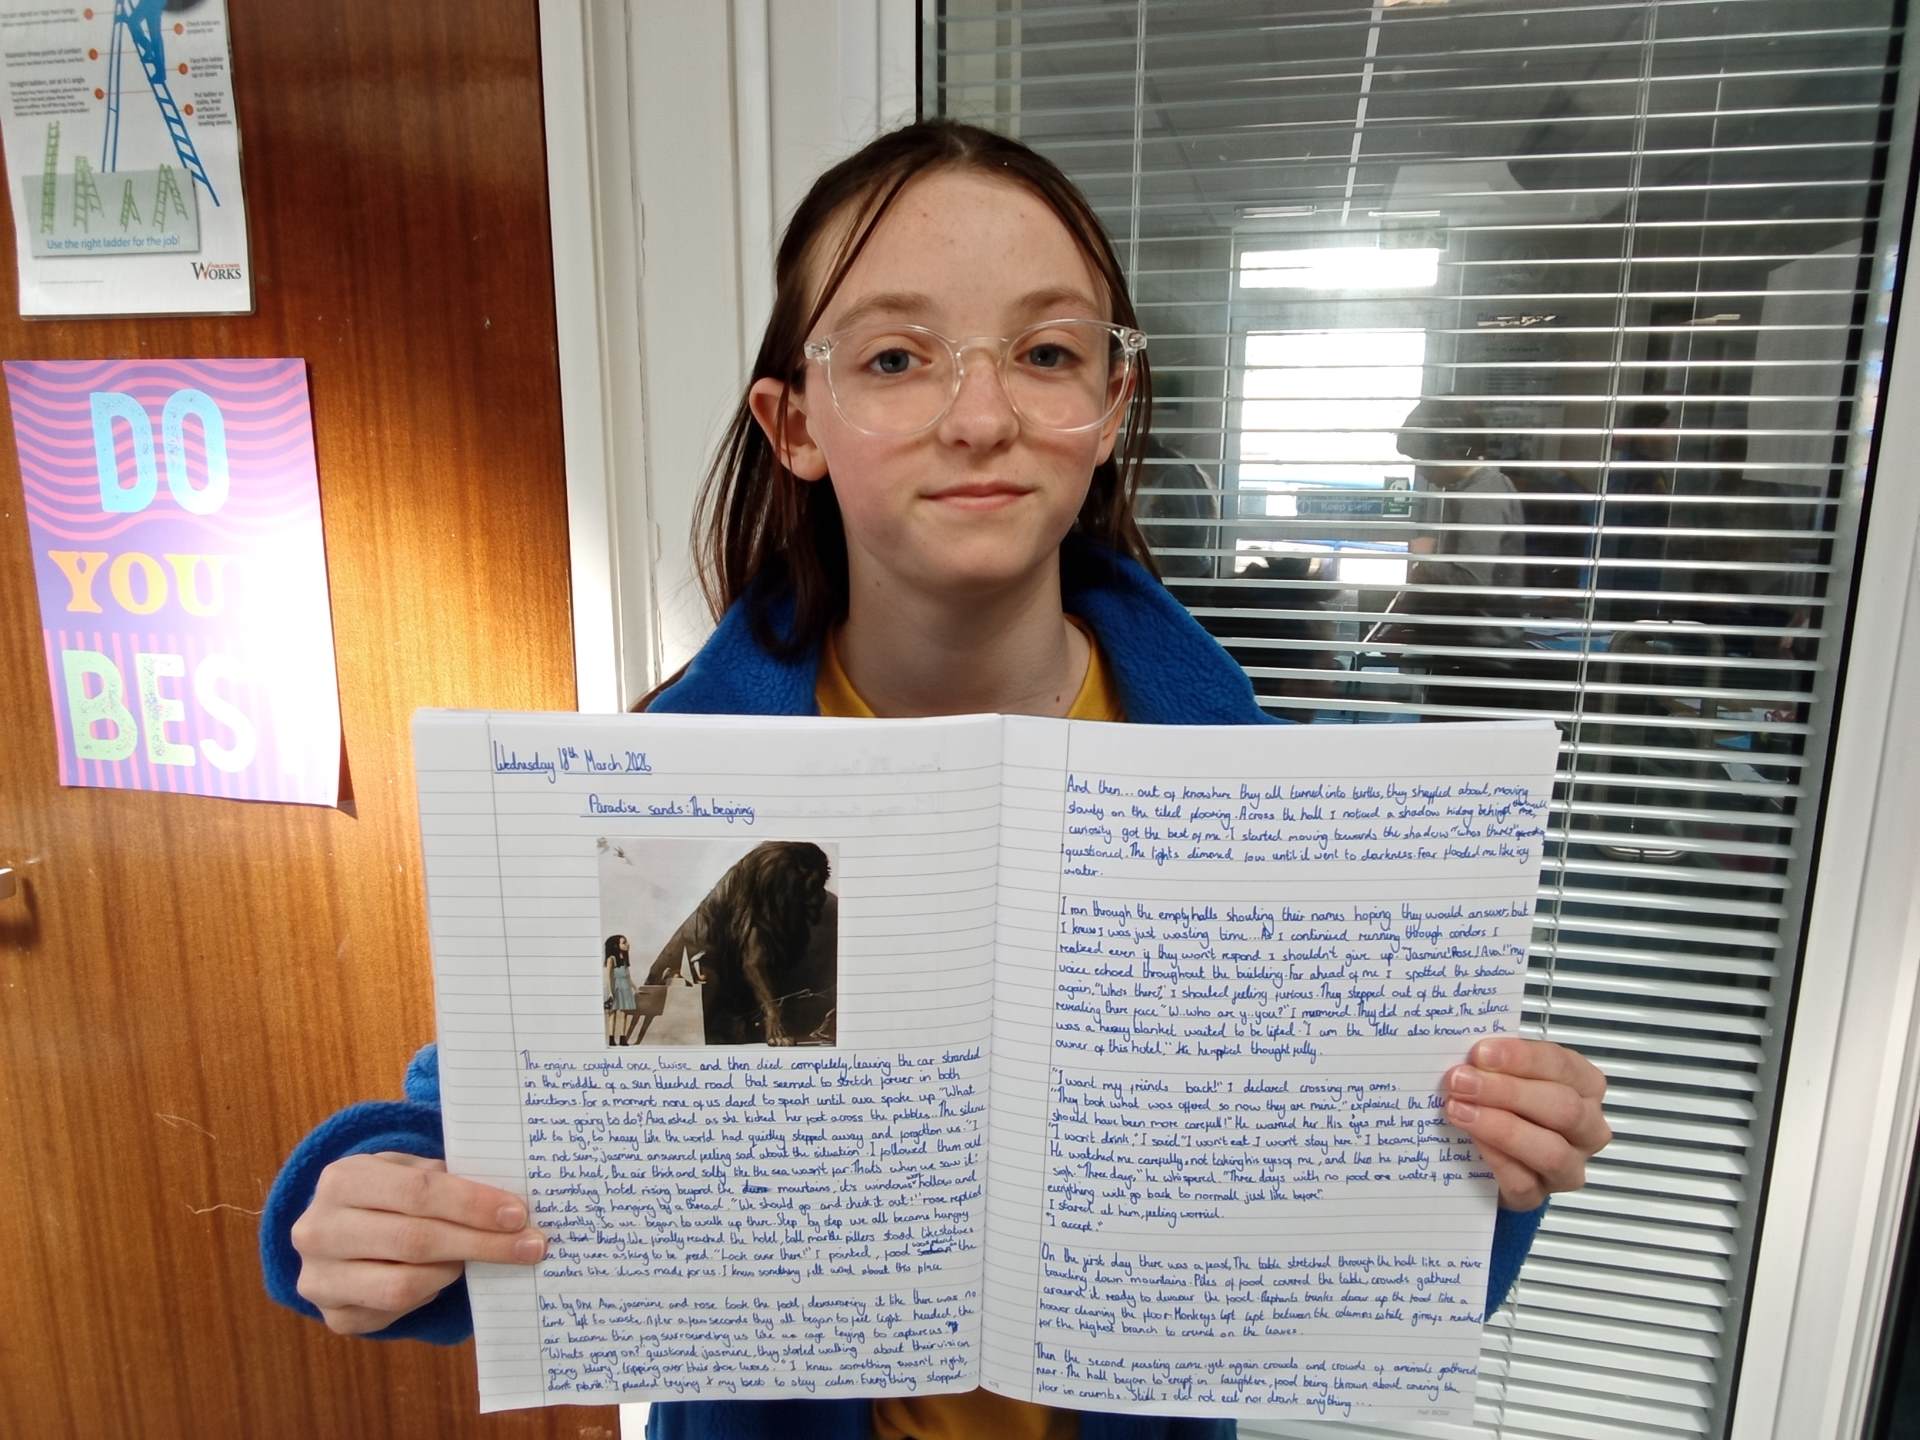 Maintain three points of contact
Straight ladders, set at 4:1 angle
Check locks are
properly set
Face the ladder
when climbing
up or down
Put ladder on
stable, level
surfaces or
use approved
leveling devices.
Use the right ladder for the job!
WORKS
DO
YOU
BES
Keep clear
Wednesday 18th March 2026
Paradise sands: The begining
The engine coughed once, twise and then died completely, leaving the car stranded
in the middle of a sun bleeched road that seemed to stretch forever in both
directions. For a moment none of us dared to speak until ava spoke up. "What
are we going to do?" Ava asked as she kicked her foot across the pebbles. The silence
felt to big, to heavy like the world had quietly stepped away and forgotten us. "I
am not sure," jasmine answered feeling sad about the situation. I followed them out
into the heat, the air thick and salty like the sea wasn't far. That's when we saw it:
a crumbling hotel rising beyond the mountains, it's windows were hollow and
dark, its sign hanging by a thread. "We should go and check it out!" rose replied
confidently. So we began to walk up there. Step by step we all became hungry
and thirsty. We finally reached the hotel, tall marble pillers stood like statues
like they were asking to be freed. "Look over there!" I pointed, food was placed on the
counters like it was made for us. I knew something felt weird about this place
One by One Ava, jasmine and rose took the food, devouring it like there was no
time left to waste. After a few seconds they all began to feel light headed, the
air became thin fog surrounding us like a cage trying to capture us.
"Whats going on?" questioned jasmine, they started walking about their vision
going blury, tripping over their shoe laces. "I knew something wasn't right,
dont panik!" I pleaded trying my best to stay calm. Everything stopped...
And then... out of knowhere they all turned into turtles, they shuffled about, moving
slowly on the tiled flooring. Across the hall I noticed a shadow hiding behind the wall
curiosity got the best of me. I started moving towards the shadow "whos there?"
I questioned. The lights dimmed low until it went to darkness. Fear flooded me like icy
water.
I ran through the empty halls shouting their names hoping they would answer, but
I knew I was just wasting time... As I continued running through condors I
realized even if they won't respond I shouldn't give up. "Jasmine! Rose! Ava!" my
voice echoed throughout the building. Far ahead of me I spotted the shadow
again. "Whos there?," I shouted feeling furious. They stepped out of the darkness
revealing there face. "W..who are y..you?" I mumered. They did not speak, The silence
was a heavy blanket waited to be lifted. "I am the Teller also known as the
owner of this hotel." He thoughtfully.
"I want my friends back!" I declared crossing my arms.
"They took what was offered so now they are mine," explained the Telle
should have been more carefull!" He warned her. His eyes met her gaze
"I won't drink," I said "I won't eat. I won't stay here." I became furious
He watched me carefully, not taking his eyes of me, and then he finally let out
sigh. "Three days," he whispered. "Three days with no food or water if you
everything will go back to normall just like before"
I stared at him, feeling worried.
"I accept."
On the first day there was a feast, The table stretched through the hall like a river
traveling down mountains. Piles of food covered the table, crowds gathered
around it ready to devour the food. Elephants trunks up the food like a
hoover cleaning the floor. Monkeys lept between the columns while girrafs reached
for the highest branch to crunch on the leaves.
Then the second feasting came, yet again crowds and crowds of animals gathered
near. The hall began to erupt in laughter, food being thrown about covering the
floor in crumbs. Still I did not eat nor drank anything...